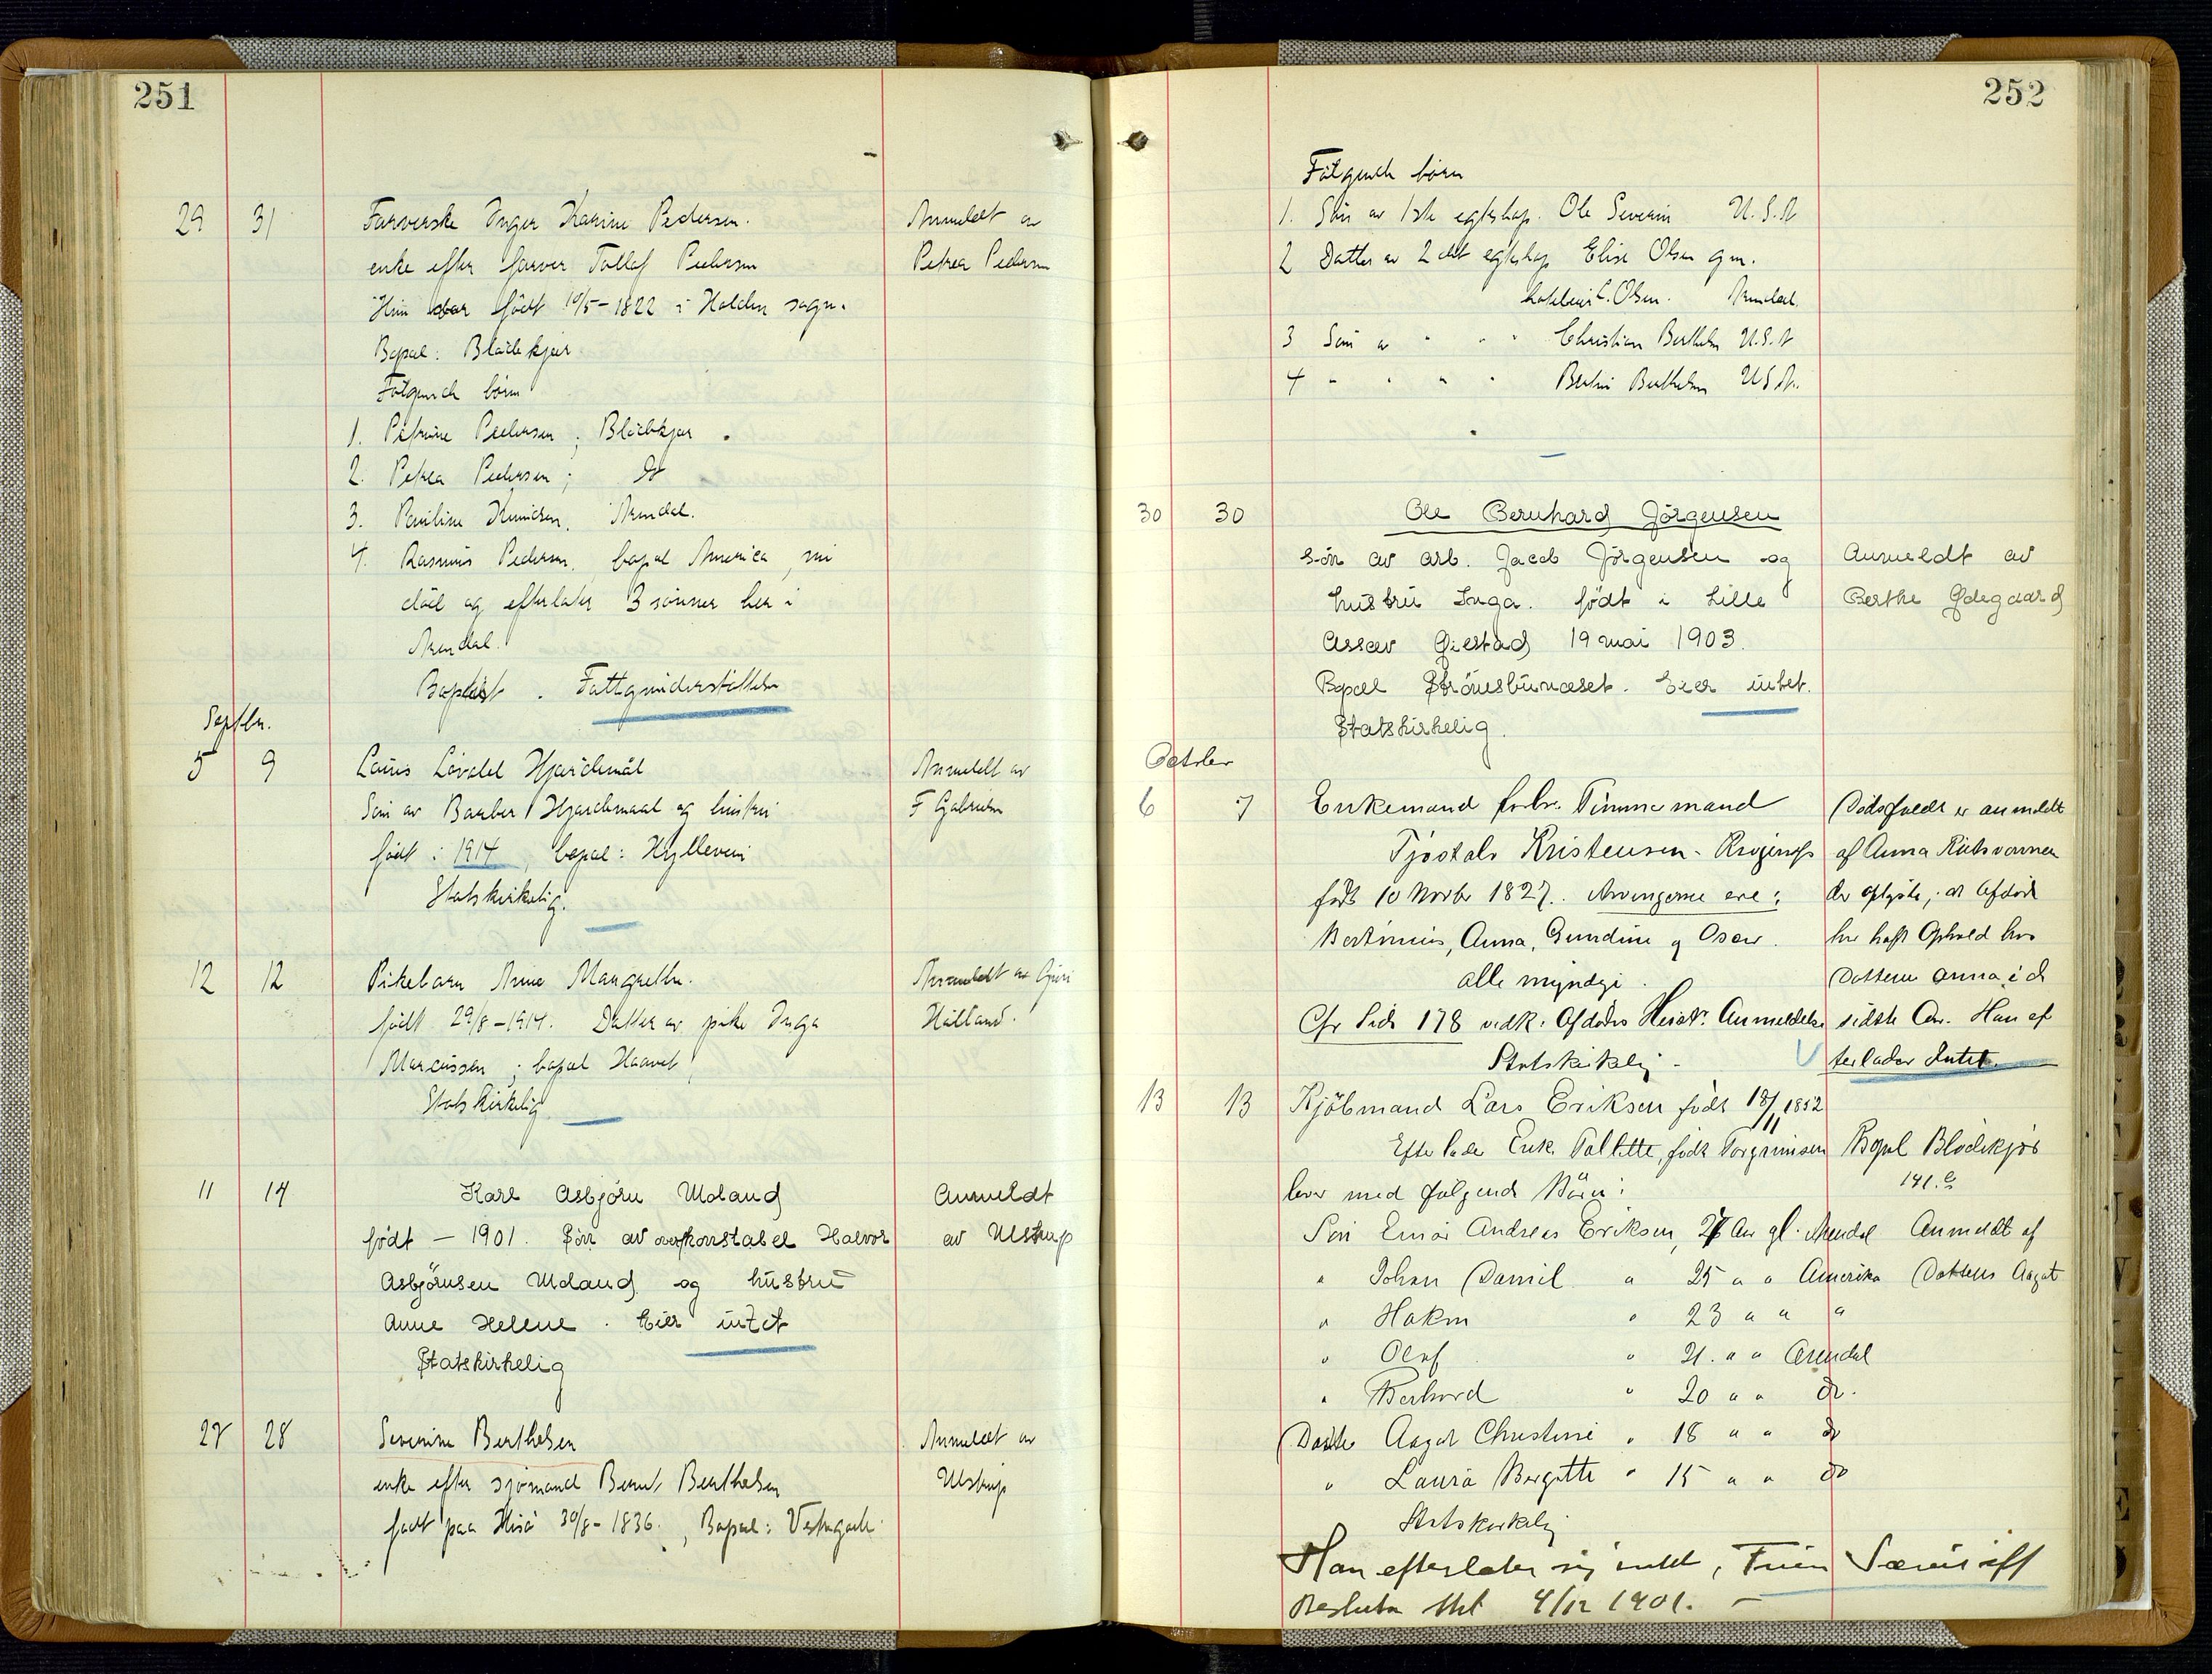 251
29 31 Farverske Inger Karine Pedersen. Anmeldt av
enke efter farver Tollaf Pedersen Petrea Pedersen
Hun var født 10/5-1822 i Holden sogn.
Bopæl: Blødekjær
Følgende børn
1. Petrine Pedersen; Blødekjær.
2. Petrea Pedersen; Do
3. Pauline Knudsen, Arendal.
4. Rasmus Pedersen, bopæl America, nu
død og efterlater 3 sønner her i
Arendal.
Baptist. Fattigunderstøttelse
Septbr.
5 9 Laurs Løvald Hjardemål Anmeldt av
Søn av Barber Hjardemaal og hustru F Gabrielsen
født i 1914, bopæl: Hylleveien
Statskirkelig.
12 12 Pikebarn Anne Margrethe. Anmeldt av
født 29/8-1914. Datter av pike Inga Håland.
Marcussen; bopæl Haavet
Statskirkelig
11 14 Karl Asbjørn Moland Anmeldt
født - 1901. Søn av overkonstabel Halvor av Ulstrup
Asbjørnsen Moland og hustru
Anne Helene. Eier intet
Statskirkelig
27 28 Severine Berthelsen Anmeldt av
enke efter sjømand Bernt Berthelsen Ulstrup
født paa Hisø 30/8-1836., Bopæl: Vestregade
252
Følgende børn
1. Søn av 1ste egteskap. Ole Severin U.S.A
2 Datter av 2det egteskap Elise Olsen gm.
Olsen. Arendal.
3 Søn av " " " Christian Berthelsen U.S.A
4 " " " " Berthelsen U.S.A.
30 30 Ole Bernhard Jörgensen
sön av arb. Jacob Jörgensen og Anmeldt av
hustru Inga. födt i Lille Berthe Ødegaard
Assev Giestad 19 mai 1903.
Bopæl Strömsbunæset. Eier intet.
Statskirkelig.
October
6 7 Enkemand forhv. Tømmermand Dødsfaldt er anmeldt
Tjøstolv Kristensen - af Anna
født 10 Novbr 1827. Arvingerne ere: der oplyste, at Afdøde
Anna, Gundine og Oscar. har haft Ophold hos
alle myndige. Datteren Anna i de
Cfr Side 178 vedk. Afdødes Anmeldelse sidste Aar. Han ef
Statskirkelig - terlader Intet.
13 13 Kjøbmand Lars Eriksen født 18/11 1852
Efterlader Enke Tallette, født Torgrimsen Bopæl Blødekjær
lever med følgende Børn: 141.
Søn Einar Andreas Eriksen, 27 Aar gl. Arendal Anmeldt af
" Johan Daniel " 25 " " Amerika Datteren Aagot
" Hakon " 23 " " "
" Olaf " 21. " " Arendal
" Berhard " 20 " " do.
Datter Aagot Christine " 18 " " do
" Laura Bergitte " 15 " " do
Statskirkelig
Han efterlater sig intet, Fruen Særeie ifl
4/12 1901. -